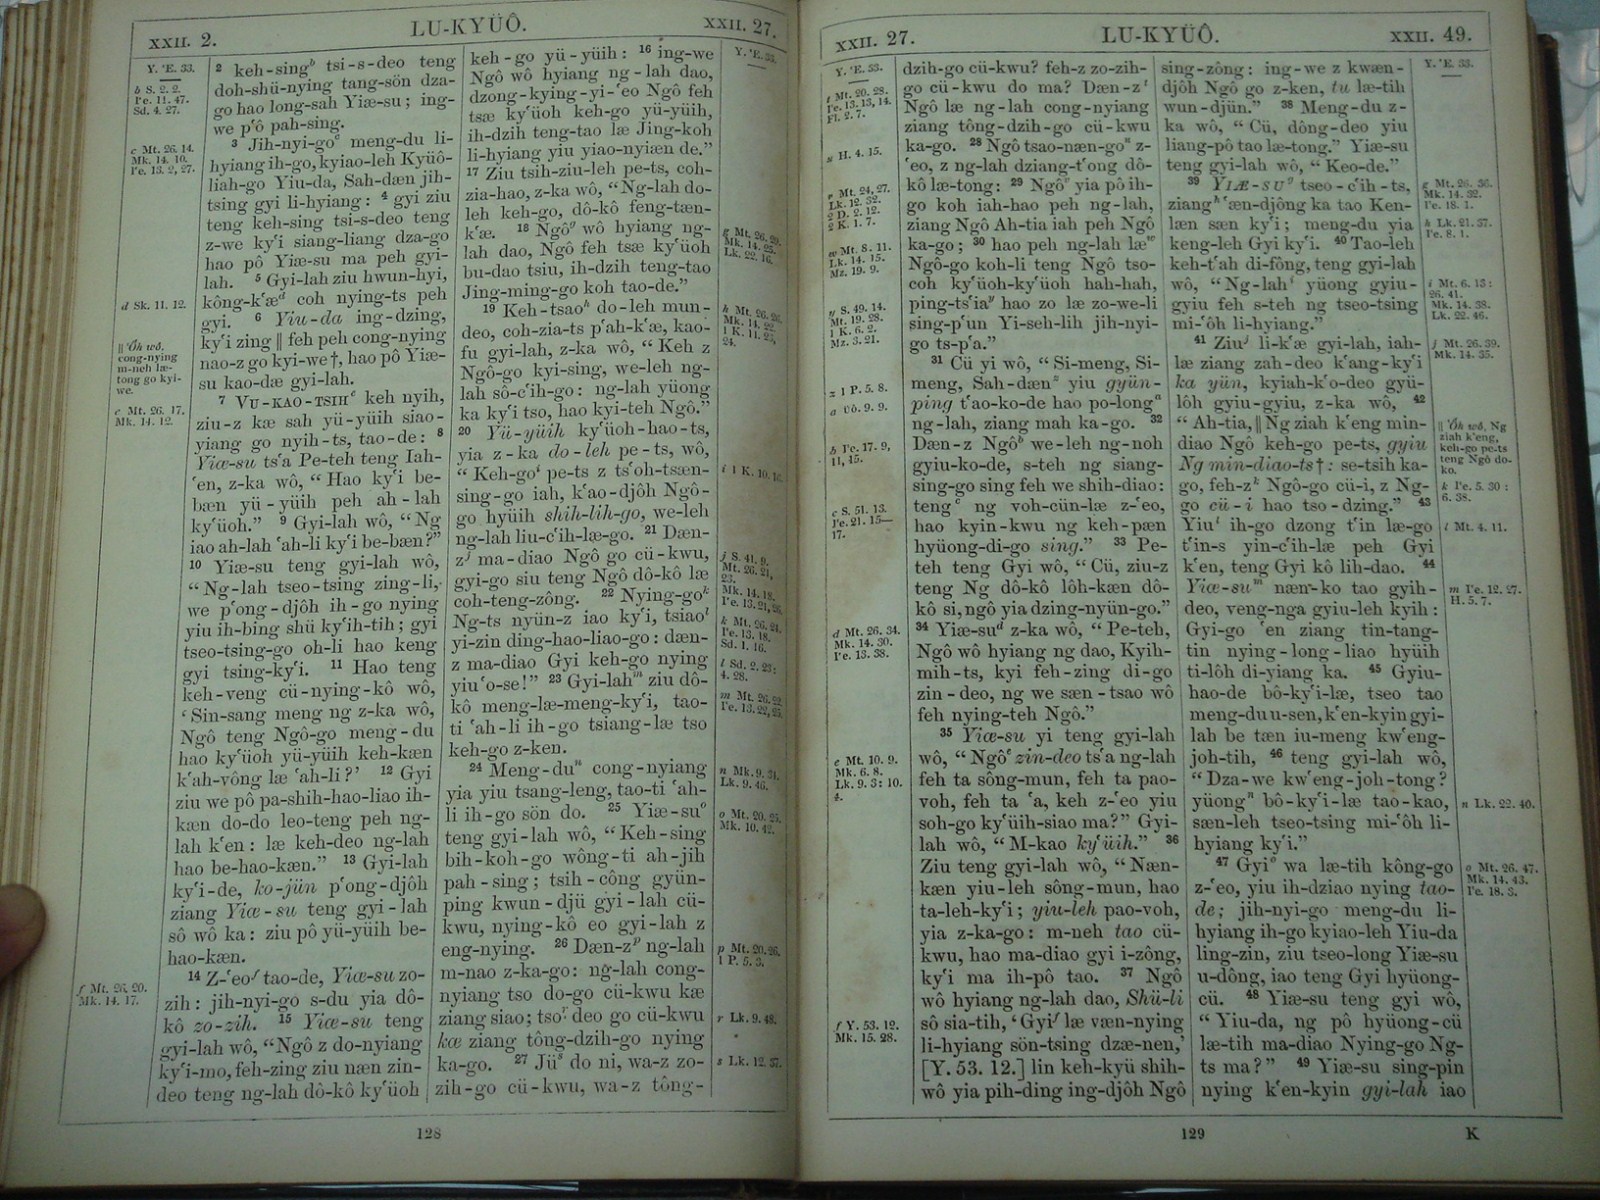 XXII. 2.
LU-KYÜÔ.
XXII. 27.
Y. ʻE. 33.
b S. 2. 2.
Pe. 11. 47.
Sd. 4. 27.
c Mt. 26. 14.
Mk. 14. 10.
Pe. 13. 2, 27.
d Sk. 11. 12.
|| ʻÔh wô,
cong-nying
m-neh læ-
tong go kyi-
we.
e Mt. 26. 17.
Mk. 14. 12.
f Mt. 26. 20.
Mk. 14. 17.
2 keh-singᵇ tsi-s-deo teng
doh-shü-nying tang-sön dza-
go hao long-sah Yiæ-su; ing-
we pʻô pah-sing.
3 Jih-nyi-goᶜ meng-du li-
hyiang ih-go, kyiao-leh Kyüô-
liah-go Yiu-da, Sah-dæn jih-
tsing gyi li-hyiang: 4 gyi ziu
teng keh-sing tsi-s-deo teng
z-we kyʻi siang-liang dza-go
hao pô Yiæ-su ma peh gyi-
lah. 5 Gyi-lah ziu hwun-hyi,
kông-kʻæᵈ coh nying-ts peh
gyi. 6 Yiu-da ing-dzing,
kyʻi zing || feh peh cong-nying
nao-z go kyi-we†, hao pô Yiæ-
su kao-dæ gyi-lah.
7 VU-KAO-TSIHᵉ keh nyih,
ziu-z kæ sah yü-yüih siao-
yiang go nyih-ts, tao-de: 8
Yiæ-su tsʻa Pe-teh teng Iah-
ʻen, z-ka wô, “Hao kyʻi be-
bæn yü-yüih peh ah-lah
kyʻüoh.” 9 Gyi-lah wô, “Ng
iao ah-lah ʻah-li kyʻi be-bæn?”
10 Yiæ-su teng gyi-lah wô,
“Ng-lah tseo-tsing zing-li,
we pʻong-djôh ih-go nying
yiu ih-bing shü kyʻih-tih; gyi
tseo-tsing-go oh-li hao keng
gyi tsing-kyʻi. 11 Hao teng
keh-veng cü-nying-kô wô,
ʻSin-sang meng ng z-ka wô,
Ngô teng Ngô-go meng-du
hao kyʻüoh yü-yüih keh-kæn
kʻah-vông læ ʻah-li?’ 12 Gyi
ziu we pô pa-shih-hao-liao ih-
kæn do-do leo-teng peh ng-
lah kʻen: læ keh-deo ng-lah
hao be-hao-kæn.” 13 Gyi-lah
kyʻi-de, ko-jün pʻong-djôh
ziang Yiæ-su teng gyi-lah
sô wô ka: ziu pô yü-yüih be-
hao-kæn.
14 Z-ʻeoᶠ tao-de, Yiæ-su zo-
zih: jih-nyi-go s-du yia dô-
kô zo-zih. 15 Yiæ-su teng
gyi-lah wô, “Ngô z do-nyiang
kyʻi-mo, feh-zing ziu næn zin-
deo teng ng-lah dô-kô kyʻüoh
keh-go yü-yüih: 16 ing-we
Ngô wô hyiang ng-lah dao,
dzong-kying-yi-ʻeo Ngô feh
tsæ kyʻüoh keh-go yü-yüih,
ih-dzih teng-tao læ Jing-koh
li-hyiang yiu yiao-nyiæn de.”
17 Ziu tsih-ziu-leh pe-ts, coh-
zia-hao, z-ka wô, “Ng-lah do-
leh keh-go, dô-kô feng-tæn-
kʻæ. 18 Ngôᵍ wô hyiang ng-
lah dao, Ngô feh tsæ kyʻüoh
bu-dao tsiu, ih-dzih teng-tao
Jing-ming-go koh tao-de.”
19 Keh-tsaoʰ do-leh mun-
deo, coh-zia-ts pʻah-kʻæ, kao-
fu gyi-lah, z-ka wô, “Keh z
Ngô-go kyi-sing, we-leh ng-
lah sô-cʻih-go: ng-lah yüong
ka kyʻi tso, hao kyi-teh Ngô.”
20 Yü-yüih kyʻüoh-hao-ts,
yia z-ka do-leh pe-ts, wô,
“Keh-goⁱ pe-ts z tsʻoh-tsæn-
sing-go iah, kʻao-djôh Ngô-
go hyüih shih-lih-go, we-leh
ng-lah liu-cʻih-læ-go. 21 Dæn-
zʲ ma-diao Ngô go cü-kwu,
gyi-go siu teng Ngô dô-kô læ
coh-teng-zông. 22 Nying-goᵏ
Ng-ts nyün-z iao kyʻi, tsiaoˡ
yi-zin ding-hao-liao-go: dæn-
z ma-diao Gyi keh-go nying
yiu ʻo-se!” 23 Gyi-lahᵐ ziu dô-
kô meng-læ-meng-kyʻi, tao-
ti ʻah-li ih-go tsiang-læ tso
keh-go z-ken.
24 Meng-duⁿ cong-nyiang
yia yiu tsang-leng, tao-ti ʻah-
li ih-go sön do. 25 Yiæ-suᵒ
teng gyi-lah wô, “Keh-sing
bih-koh-go wông-ti ah-jih
pah-sing; tsih-công gyün-
ping kwun-djü gyi-lah cü-
kwu, nying-kô eo gyi-lah z
eng-nying. 26 Dæn-zᵖ ng-lah
m-nao z-ka-go: ng-lah cong-
nyiang tso do-go cü-kwu kæ
ziang siao; tsoʳ deo go cü-kwu
kæ ziang tông-dzih-go nying
ka-go. 27 Jüˢ do ni, wa-z zo-
zih-go cü-kwu, wa-z tông-
Y. ʻE. 33.
g Mt. 26. 29.
Mk. 14. 25.
Lk. 22. 16.
h Mt. 26. 26.
Mk. 14. 22.
1 K. 11. 23,
24.
i 1 K. 10. 16.
j S. 41. 9.
Mt. 26. 21,
23.
Mk. 14. 18.
Pe. 13. 21, 26.
k Mt. 26. 24.
Pe. 13. 18.
Sd. 1. 16.
l Sd. 2. 23:
4. 28.
m Mt. 26. 22.
Pe. 13. 22, 25.
n Mk. 9. 34.
Lk. 9. 46.
o Mt. 20. 25.
Mk. 10. 42.
p Mt. 20. 26.
1 P. 5. 3.
r Lk. 9. 48.
s Lk. 12. 37.
128
XXII. 27.
LU-KYÜÔ.
XXII. 49.
Y. ʻE. 33.
t Mt. 20. 28.
Pe. 13. 13, 14.
Fl. 2. 7.
u H. 4. 15.
v Mt. 24. 27.
Lk. 12. 32.
2 D. 2. 12.
2 K. 1. 7.
w Mt. 8. 11.
Lk. 14. 15.
Mz. 19. 9.
y S. 49. 14.
Mt. 19. 28.
1 K. 6. 2.
Mz. 3. 21.
z 1 P. 5. 8.
a Oô. 9. 9.
b Pe. 17. 9,
11, 15.
c S. 51. 13.
Pe. 21. 15—
17.
d Mt. 26. 34.
Mk. 14. 30.
Pe. 13. 38.
e Mt. 10. 9.
Mk. 6. 8.
Lk. 9. 3: 10.
4.
f Y. 53. 12.
Mk. 15. 28.
dzih-go cü-kwu? feh-z zo-zih-
go cü-kwu do ma? Dæn-zᵗ
Ngô læ ng-lah cong-nyiang
ziang tông-dzih-go cü-kwu
ka-go. 28 Ngô tsao-næn-goᵘ z-
ʻeo, z ng-lah dziang-tʻong dô-
kô læ-tong: 29 Ngôᵛ yia pô ih-
go koh iah-hao peh ng-lah,
ziang Ngô Ah-tia iah peh Ngô
ka-go; 30 hao peh ng-lah læʷ
Ngô-go koh-li teng Ngô tso-
coh kyʻüoh-kyʻüoh hah-hah,
ping-tsʻiaʸ hao zo læ zo-we-li
sing-pʻun Yi-seh-lih jih-nyi-
go ts-pʻa.”
31 Cü yi wô, “Si-meng, Si-
meng, Sah-dænᶻ yiu gyün-
ping tʻao-ko-de hao po-longᵃ
ng-lah, ziang mah ka-go. 32
Dæn-z Ngôᵇ we-leh ng-noh
gyiu-ko-de, s-teh ng siang-
sing-go sing feh we shih-diao:
tengᶜ ng voh-cün-læ z-ʻeo,
hao kyin-kwu ng keh-pæn
hyüong-di-go sing.” 33 Pe-
teh teng Gyi wô, “Cü, ziu-z
teng Ng dô-kô lôh-kæn dô-
kô si, ngô yia dzing-nyün-go.”
34 Yiæ-suᵈ z-ka wô, “Pe-teh,
Ngô wô hyiang ng dao, Kyih-
mih-ts, kyi feh-zing di-go
zin-deo, ng we sæn-tsao wô
feh nying-teh Ngô.”
35 Yiæ-su yi teng gyi-lah
wô, “Ngôᵉ zin-deo tsʻa ng-lah
feh ta sông-mun, feh ta pao-
voh, feh ta ʻa, keh z-ʻeo yiu
soh-go kyʻüih-siao ma?” Gyi-
lah wô, “M-kao kyʻüih.” 36
Ziu teng gyi-lah wô, “Næn-
kæn yiu-leh sông-mun, hao
ta-leh-kyʻi; yiu-leh pao-voh,
yia z-ka-go: m-neh tao cü-
kwu, hao ma-diao gyi i-zông,
kyʻi ma ih-pô tao. 37 Ngô
wô hyiang ng-lah dao, Shü-li
sô sia-tih, ʻGyiᶠ læ væn-nying
li-hyiang sön-tsing dzæ-nen,’
[Y. 53. 12.] lin keh-kyü shih-
wô yia pih-ding ing-djôh Ngô
sing-zông: ing-we z kwæn-
djôh Ngô go z-ken, tu læ-tih
wun-djün.” 38 Meng-du z-
ka wô, “Cü, dông-deo yiu
liang-pô tao læ-tong.” Yiæ-su
teng gyi-lah wô, “Keo-de.”
39 YIÆ-SUᵍ tseo-cʻih-ts,
ziangʰ ʻæn-djông ka tao Ken-
læn sæn kyʻi; meng-du yia
keng-leh Gyi kyʻi. 40 Tao-leh
keh-tʻah di-fông, teng gyi-lah
wô, “Ng-lahⁱ yüong gyiu-
gyiu feh s-teh ng tseo-tsing
mi-ʻôh li-hyiang.”
41 Ziuʲ li-kʻæ gyi-lah, iah-
læ ziang zah-deo kʻang-kyʻi
ka yün, kyiah-kʻo-deo gyü-
lôh gyiu-gyiu, z-ka wô, 42
“Ah-tia, || Ng ziah kʻeng min-
diao Ngô keh-go pe-ts, gyiu
Ng min-diao-ts†: se-tsih ka-
go, feh-zᵏ Ngô-go cü-i, z Ng-
go cü-i hao tso-dzing.” 43
Yiuˡ ih-go dzong tʻin læ-go
tʻin-s yin-cʻih-læ peh Gyi
kʻen, teng Gyi kô lih-dao. 44
Yiæ-suᵐ næn-ko tao gyih-
deo, veng-nga gyiu-leh kyih:
Gyi-go ʻen ziang tin-tang-
tin nying-long-liao hyüih
ti-lôh di-yiang ka. 45 Gyiu-
hao-de bô-kyʻi-læ, tseo tao
meng-du u-sen, kʻen-kyin gyi-
lah be tæn iu-meng kwʻeng-
joh-tih, 46 teng gyi-lah wô,
“Dza-we kwʻeng-joh-tong?
yüongⁿ bô-kyʻi-læ tao-kao,
sæn-leh tseo-tsing mi-ʻôh li-
hyiang kyʻi.”
47 Gyiᵒ wa læ-tih kông-go
z-ʻeo, yiu ih-dziao nying tao-
de; jih-nyi-go meng-du li-
hyiang ih-go kyiao-leh Yiu-da
ling-zin, ziu tseo-long Yiæ-su
u-dông, iao teng Gyi hyüong-
cü. 48 Yiæ-su teng gyi wô,
“Yiu-da, ng pô hyüong-cü
læ-tih ma-diao Nying-go Ng-
ts ma?” 49 Yiæ-su sing-pin
nying kʻen-kyin gyi-lah iao
Y. ʻE. 33.
g Mt. 26. 36.
Mk. 14. 32.
Pe. 18. 1.
h Lk. 21. 37.
Pe. 8. 1.
i Mt. 6. 13:
26. 41.
Mk. 14. 38.
Lk. 22. 46.
j Mt. 26. 39.
Mk. 14. 35.
|| ʻÔh wô, Ng
ziah kʻeng,
keh-go pe-ts
teng Ngô do-
ko.
k Pe. 5. 30:
6. 38.
l Mt. 4. 11.
m Pe. 12. 27.
H. 5. 7.
n Lk. 22. 40.
o Mt. 26. 47.
Mk. 14. 43.
Pe. 18. 3.
129
K